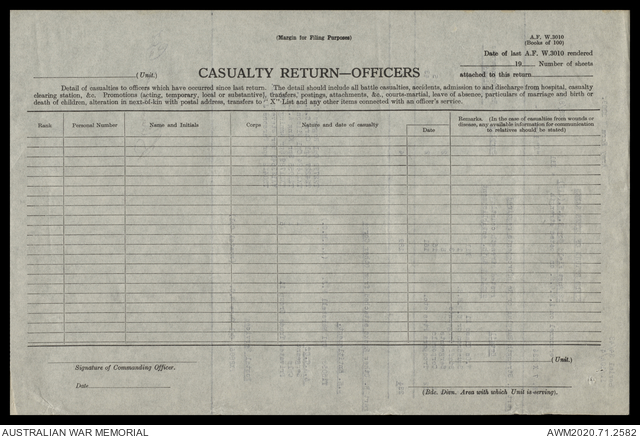 (Margin for Filing Purposes)
A.F. W.3010
(Books of 100)
Date of last A.F. W.3010 rendered
19 Number of sheets
(Unit.) CASUALTY RETURN—OFFICERS attached to this return
Detail of casualties to officers which have occurred since last return. The detail should include all battle casualties, accidents, admission to and discharge from hospital, casualty
clearing station, &c. Promotions (acting, temporary, local or substantive), transfers, postings, attachments, &c., courts-martial, leave of absence, particulars of marriage and birth or
death of children, alteration in next-of-kin with postal address, transfers to "X" List and any other items connected with an officer's service.
Rank Personal Number Name and Initials Corps Nature and date of casualty Date
Remarks. (In the case of casualties from wounds or
disease, any available information for communication
to relatives should be stated)
(Unit.)
Signature of Commanding Officer.
Date
(Bde. Divn. Area with which Unit is serving).
AUSTRALIAN WAR MEMORIAL AWM2020.71.2582